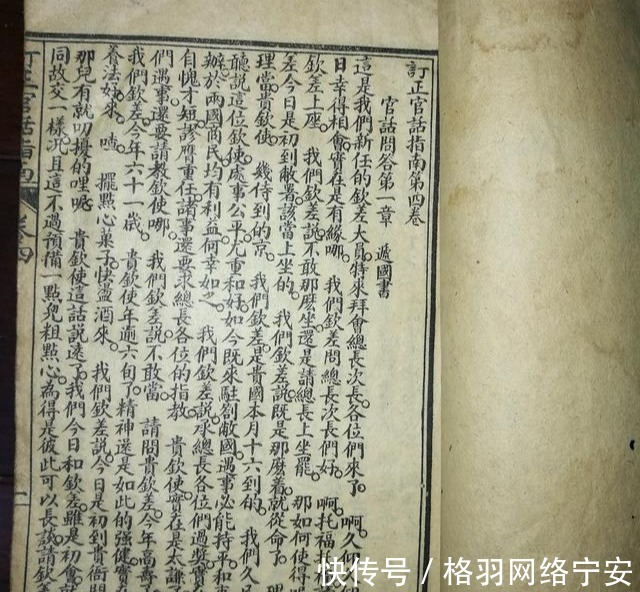 訂正官話指南第四卷
官話問答第一章　遞國書
這是我們新任的欽差大員。特來拜會總長次長各位們來了。啊久仰
日幸得相會。實在是有緣哪。我們欽差問總長次長們好。啊托福托福
欽差上座。我們欽差說不敢那麼坐。還是請總長上坐罷。那如何使得
差今日是初到敝署。該當上坐的。我們欽差說既是那麼着就從命了
理當。貴欽使　幾待到的京。我們欽差是貴國本月十六到的。我們久
聽說這位欽使處事公平。尤重和好。如今既來駐劄敝國。遇事必能持平和
辦於兩國商民均有利益何幸如之。我們欽差說承總長各位們過獎實
自愧才短。謬膺重任。諸事還要求總長各位的指教。貴欽使實在是太謙
們遇事還要請教欽使哪。我們欽差說不敢當。請問貴欽差今年高壽
我們欽差今年六十一歲。貴欽使年逾六旬了。精神還是如此的強健實
養法好。來。嗻。擺點心菓子快盪酒來。我們欽差說今日是初到貴衙門
那兒有就叨擾的哩呢。貴欽使這話說遠了。我們今日和欽差。雖是初會。就
同故交一樣。況且這不過預備一點兒粗點心。為得是彼此可以長談。請欽
訂正官話指南　卷四　一
快传号／格羽网络宁安